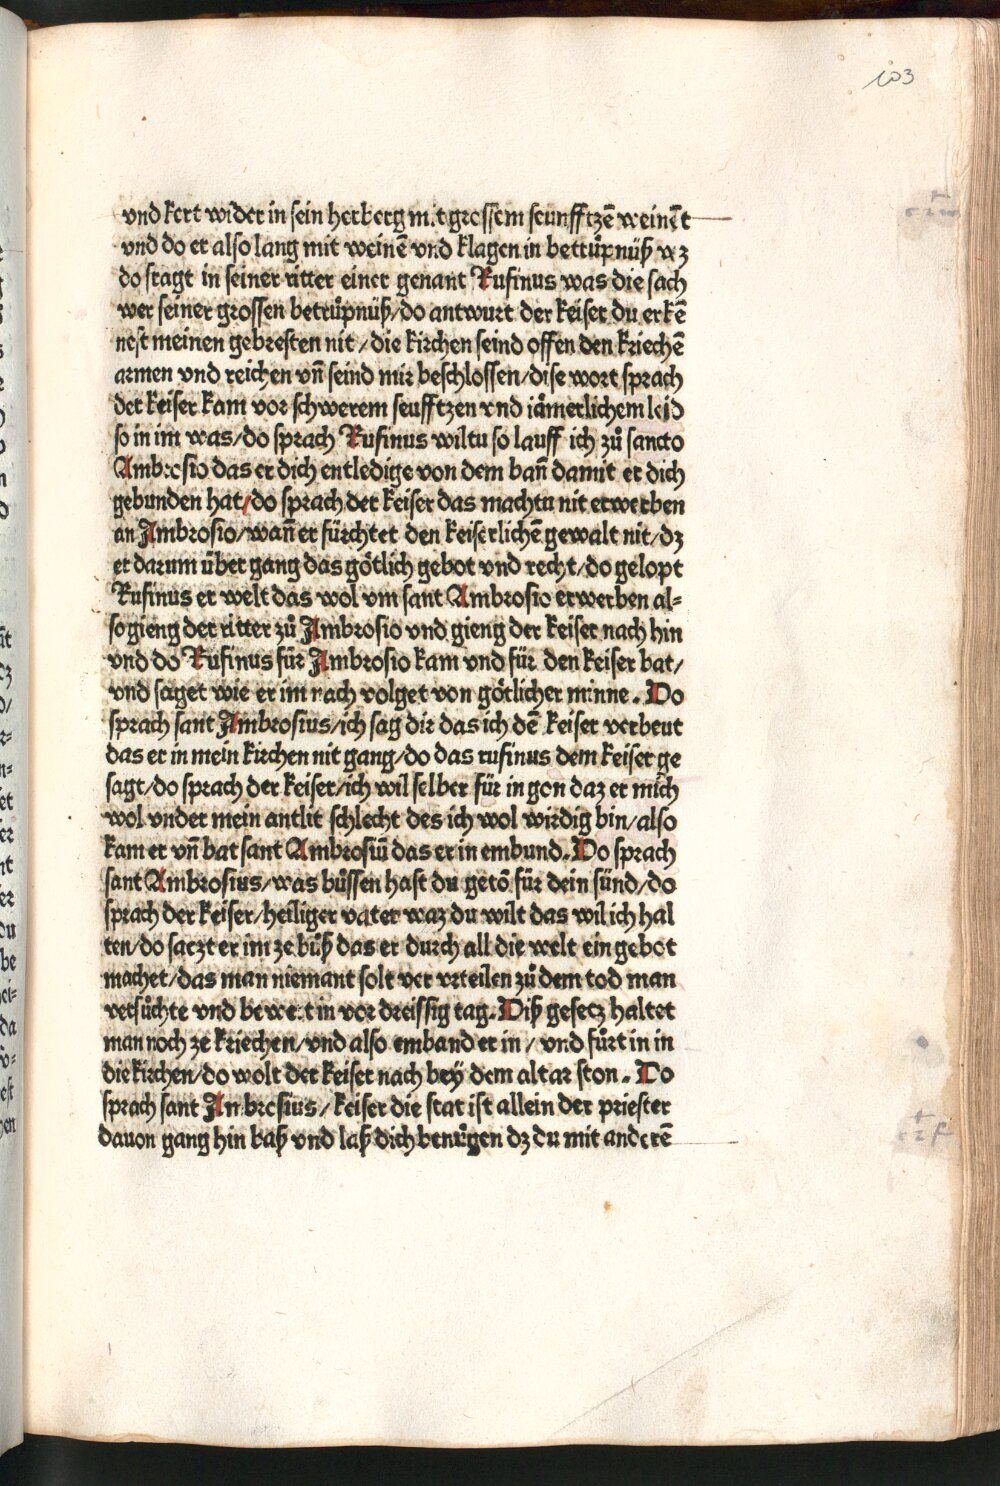 103
vnd kert wider in sein herberg mit grossem seunfftzē weinēt
vnd do er also lang mit weinē vnd klagen in betrůpnüß wz
do fragt in seiner ritter einer genant Rufinus was die sach
wer seiner grossen betrůpnüß/do antwurt der keiser du erkē
nest meinen gebresten nit/die kirchen seind offen den kriechē
armen vnd reichen vn̄ seind mir beschlossen/dise wort sprach
der keiser kam vor schwerem seufftzen vnd iāmerlichem leid
so in im was/do sprach Rufinus wiltu so lauff ich zů sancto
Ambrosio das er dich entledige von dem ban̄ damit er dich
gebunden hat/do sprach der keiser das machtu nit erwerben
an Ambrosio/wan̄ er fürchtet den keiserlichē gewalt nit/dz
er darum über gang das götlich gebot vnd recht/do gelopt
Rufinus er welt das wol vm sant Ambrosio erwerben al⸗
so gieng der ritter zů Ambrosio vnd gieng der keiser nach hin
vnd do Rufinus für Ambrosio kam vnd für den keiser bat/
vnd saget wie er im nach volget von götlicher minne. Do
sprach sant Ambrosius/ich sag dir das ich dē keiser verbeut
das er in mein kirchen nit gang/do das rufinus dem keiser ge
sagt/do sprach der keiser/ich wil selber für in gon daz er mich
wol vnder mein antlit schlecht des ich wol wirdig bin/also
kam er vn̄ bat sant Ambrosiū das er in embund. Do sprach
sant Ambrosius/was bůssen hast du getō für dein sünd/do
sprach der keiser/heiliger vater waz du wilt das wil ich hal
ten/do saczt er im ze bůß das er durch all die welt ein gebot
machet/das man niemant solt ver vrteilen zů dem tod man
versůchte vnd bewert in vor dreissig tag. Diß gesecz haltet
man noch ze kriechen/vnd also emband er in/vnd fůrt in in
die kirchen/do wolt der keiser nach bey dem altar ston. Do
sprach sant Ambrosius/keiser die stat ist allein der priester
dauon gang hin baß vnd laß dich benůgen dz du mit anderē